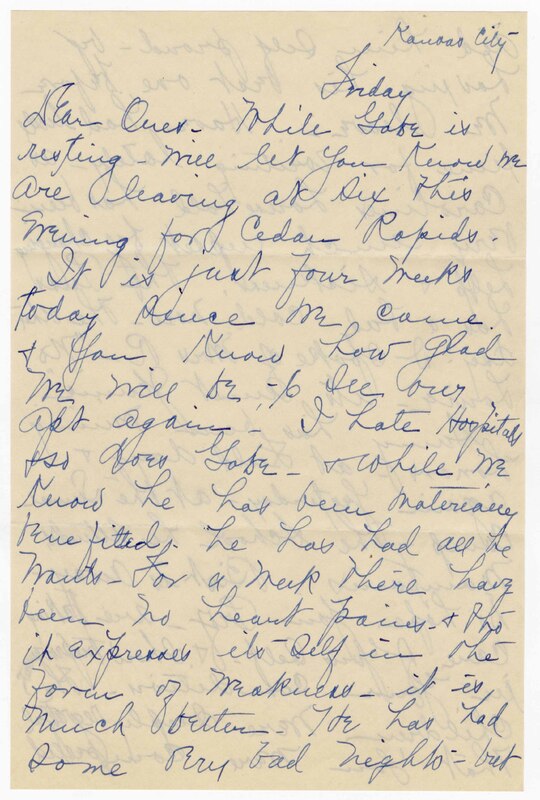 Kansas City
Friday
Dear Ones - While Gabe is
resting - will let you know we
are leaving at six this
Evening for Cedar Rapids.
It is just four weeks
today since we came
& you know how glad
we will be, - to see our
apt again - I hate Hospitals
& so does Gabe - & while we
know he has been materially
benefitted. he has had all he
wants - For a week there have
been no heart pains - & tho
it expresses its self in the
form of weakness - it is
much better - He has had
some very bad nights - but